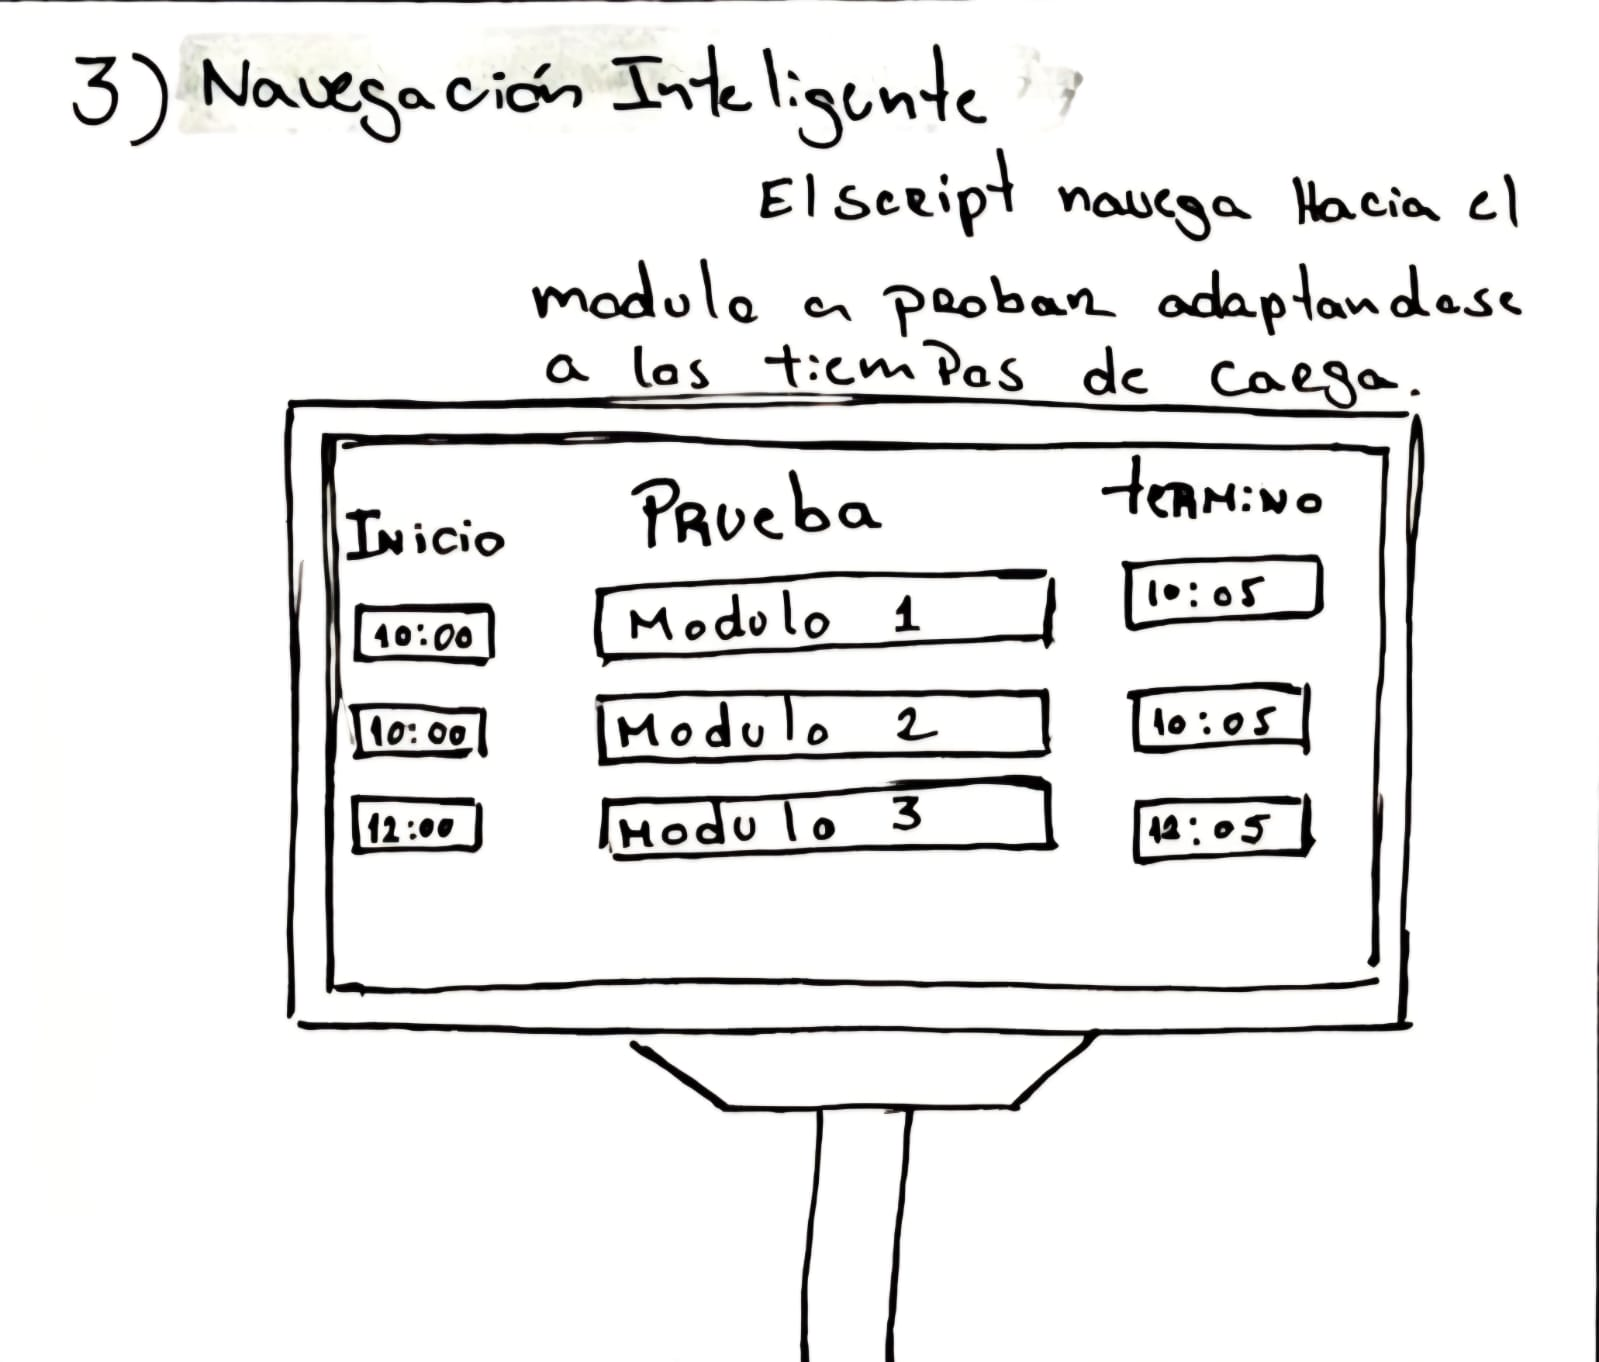 3) Navegación Inteligente
El script navega Hacia el
modulo a probar adaptandose
a los tiempos de carga.
Inicio Prueba termino
10:00 Modulo 1 10:05
10:00 Modulo 2 10:05
12:00 Modulo 3 12:05